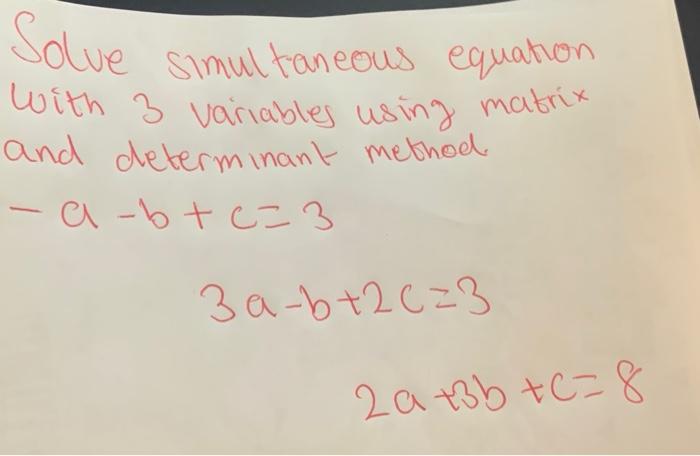 Solve simultaneous equation
with 3 variables using matrix
and determinant method
- a - b + c = 3
3a - b + 2c = 3
2a + 3b + c = 8